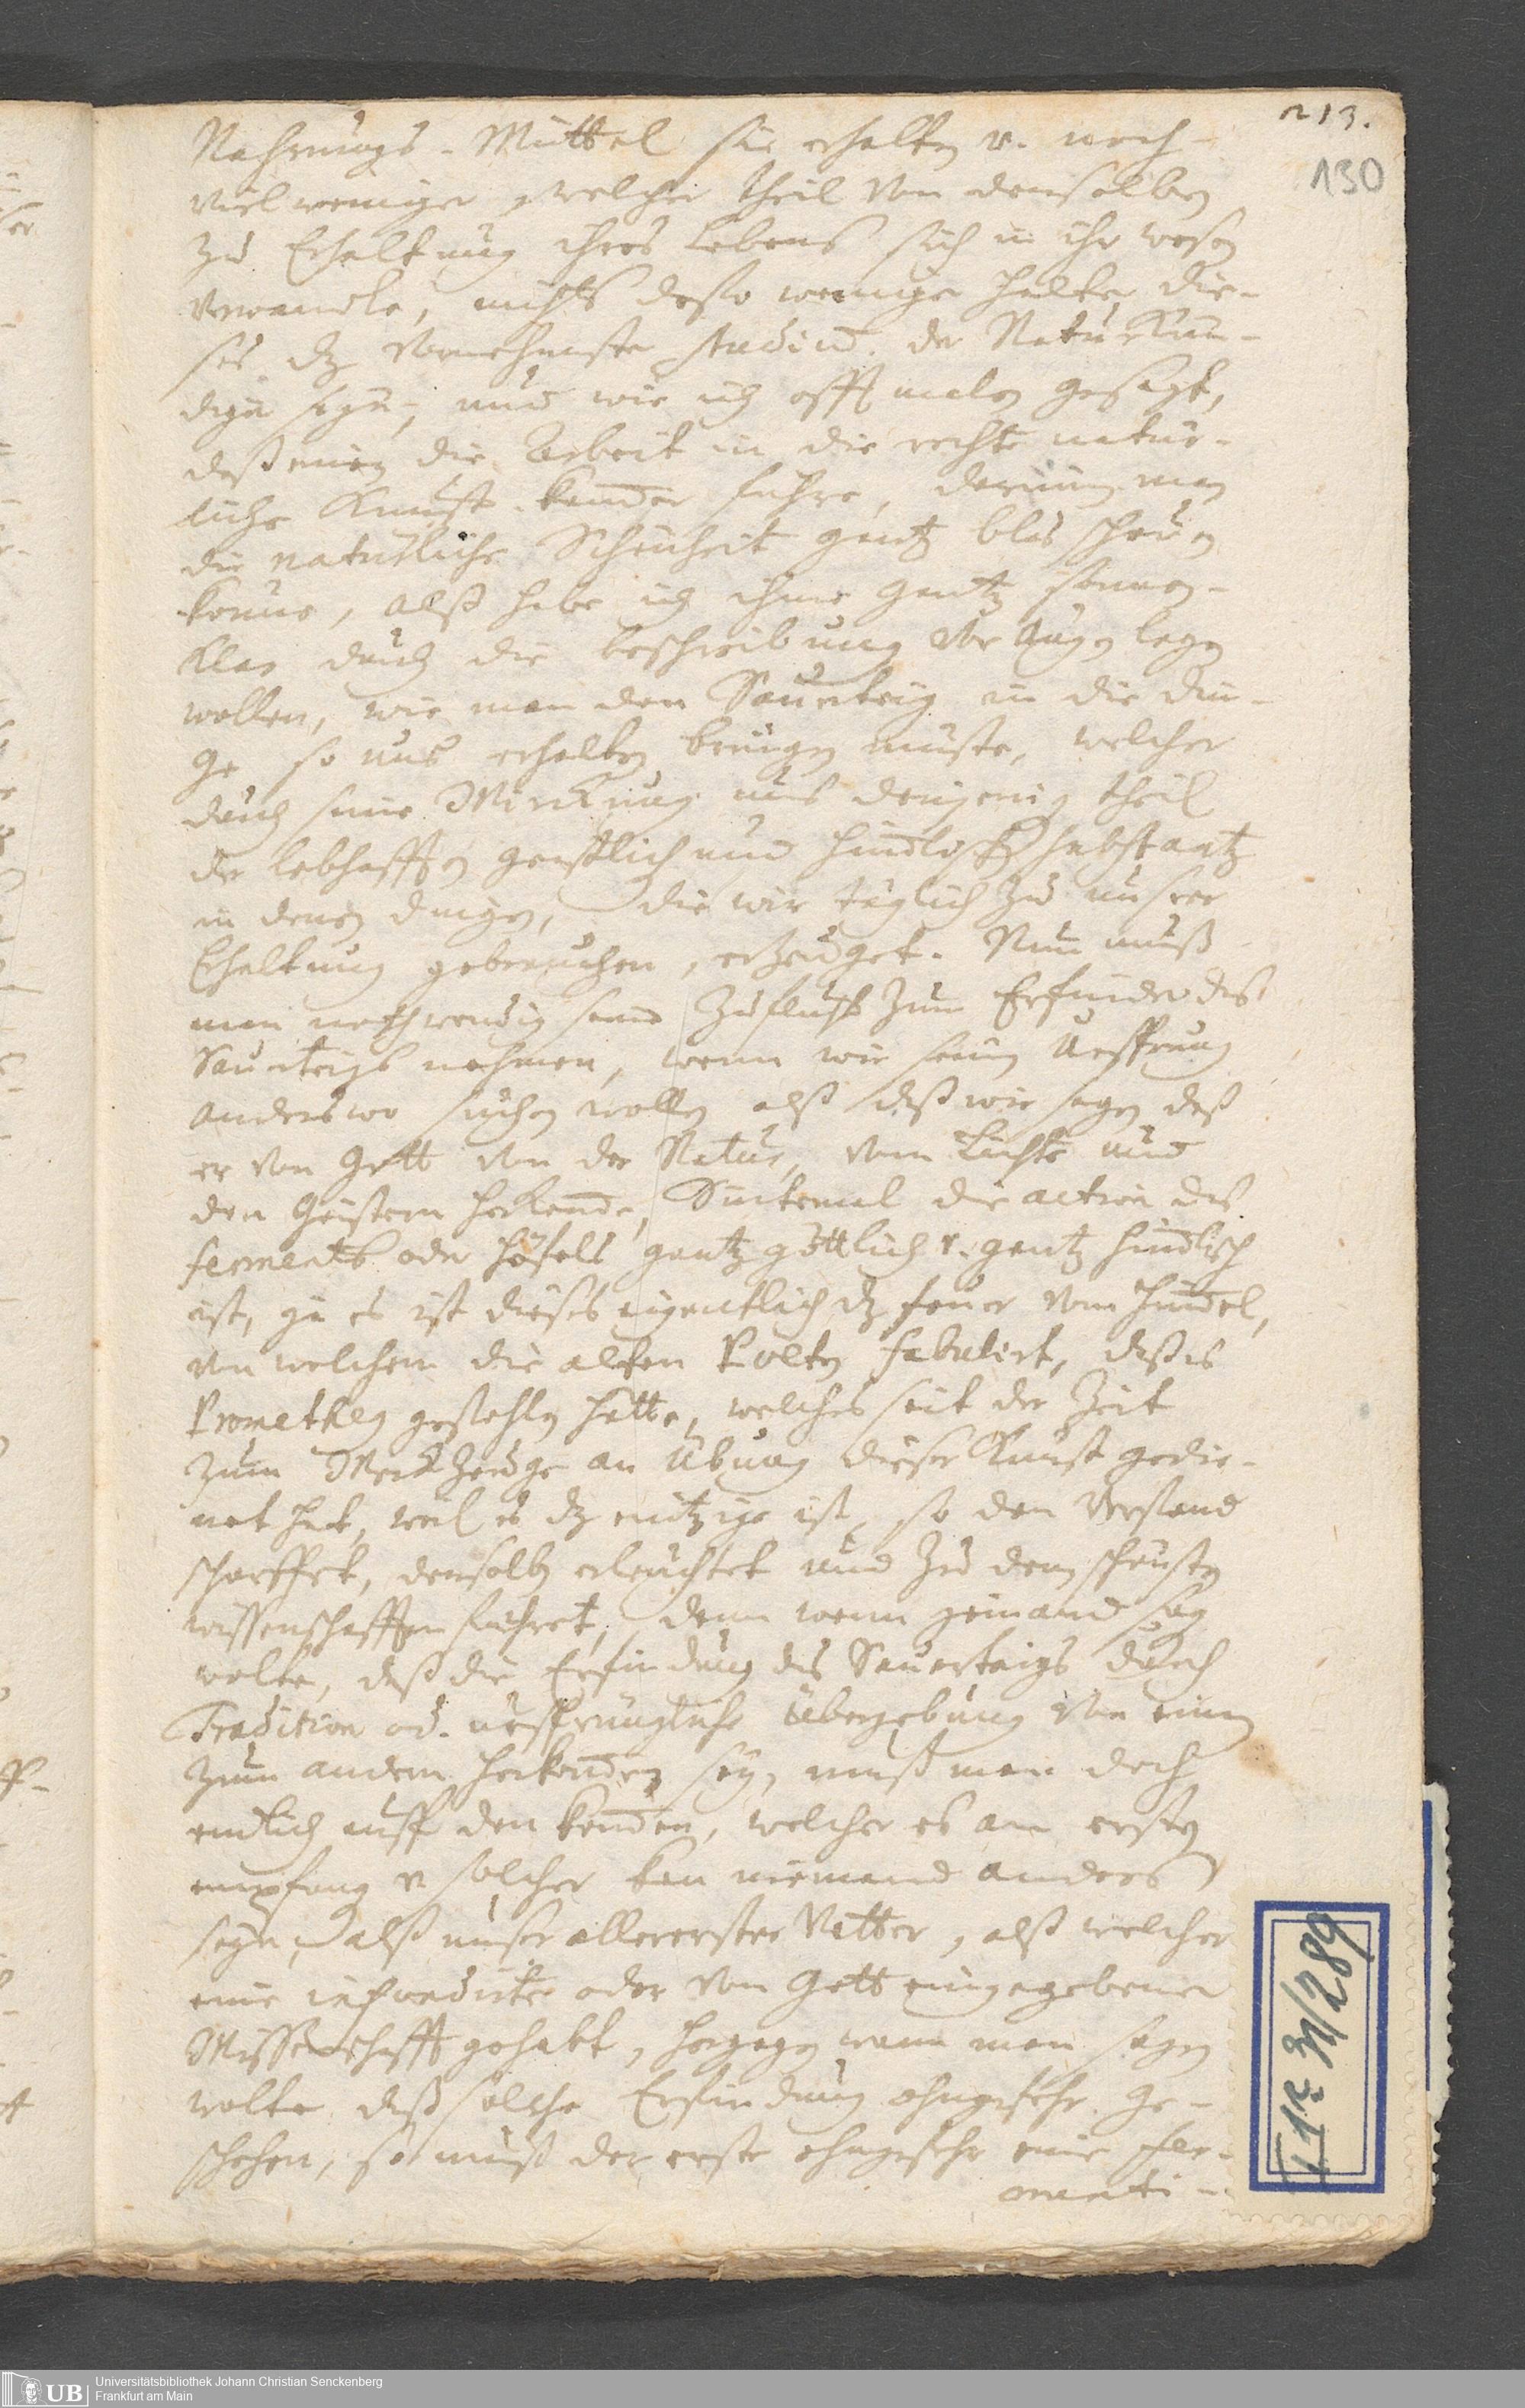 213.
130
Nahrungs-Mittel sie erhalten u. noch
viel weniger, welcher theil von denselben
zu Erhaltung ihres Lebens sich in ihr wesen
verwandle, nichts desto weniger halte die-
ses dz vornehmste Studium der Naturkün-
diger seyn, und wie ich offtmalen gesagt,
daß einen die Arbeit in die rechte natür-
liche Kunst-Kammer führe, darinnen man
die natürliche Schönheit gantz blos schauen
könne, alß habe ich ihme gantz sonnen-
klar durch die beschreibung vor Augen legen
wollen, wie man den Sauerteig in die Din-
ge so uns erhalten bringen müste, welcher
durch seine Wirckung uns denjenigen theil
der lebhafften geistlich und himmlischen substantz
in denen dingen, die wir täglich zu unserer
Erhaltung gebrauchen, erzeuget. Nun muß
man nothwendig seine Zuflucht zum Erfinder des
Sauerteigs nehmen, wenn wir seinen Ursprung
anderswo suchen wollen alß daß wir sagen daß
er von Gott von der Natur, vom Lichte und
den Geistern herkomme, Sintemal die action des
ferments oder Hefels gantz göttlich u. gantz himmlisch
ist, ja es ist dieses eigentlich dz feuer vom Himmel,
von welchem die alten Poeten fabulirt, daß es
Prometheus gestohlen hätte, welches seit der Zeit
zum Werckzeuge an Übung dieser Kunst gedie-
net hat, weil es dz eintzige ist, so den Verstand
schärffet, denselben erleuchtet und zu den schönsten
wissenschafften führet, denn wenn jemand sagen
wolte, daß die Erfindung des Sauerteigs durch
Tradition od. ursprüngliche Übergebung von einem
zum andern herkommen sey, muß man doch
endlich auff den kommen, welcher es am ersten
empfangen u solcher kan niemand anders
seyn, alß unser allererster Vatter, alß welcher
eine oder von Gott eingegebene
Wissenschafft gehabt, hergegen wann man sagen
wolte daß solche Erfindung ohngefehr ge-
schehen, so muß der erste ohngefehr eine fer-
menti-
UB
Universitätsbibliothek Johann Christian Senckenberg
Frankfurt am Main